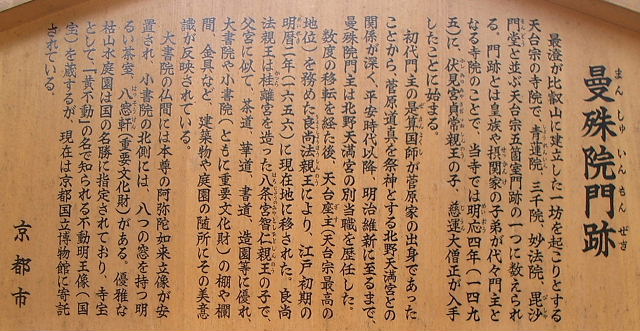 曼殊院門跡
まんしゅいんもんぜき
最澄が比叡山に建立した一坊を起こりとする
天台宗の寺院で、青蓮院、三千院、妙法院、毘沙
門堂と並ぶ天台宗五箇室門跡の一つに数えられ
る。門跡とは皇族や摂関家の子弟が代々門主と
なる寺院のことで、当寺では明応四年（一四九
五）に、伏見宮貞常親王の子、慈運大僧正が入寺
したことに始まる。
初代門主の是算国師が菅原家の出身であった
ことから、菅原道真を祭神とする北野天満宮との
関係が深く、平安時代以降、明治維新に至るまで、
曼殊院門主は北野天満宮の別当職を歴任した。
数度の移転を経た後、天台座主（天台宗最高の
地位）を務めた良尚法親王により、江戸初期の
明暦二年（一六五六）に現在地に移された。良尚
法親王は桂離宮を造った八条宮智仁親王の子で、
父宮に似て、茶道、華道、書道、造園等に優れ、
大書院や小書院（ともに重要文化財）の棚や欄
間、金具など、建築物や庭園の随所にその美意
識が反映されている。
大書院の仏間には本尊の阿弥陀如来立像が安
置され、小書院の北側には、八つの窓を持つ明
るい茶室、八窓軒（重要文化財）がある。優雅な
枯山水庭園は国の名勝に指定されており、寺宝
として「黄不動」の名で知られる不動明王像（国
宝）を蔵するが、現在は京都国立博物館に寄託
されている。
京都市